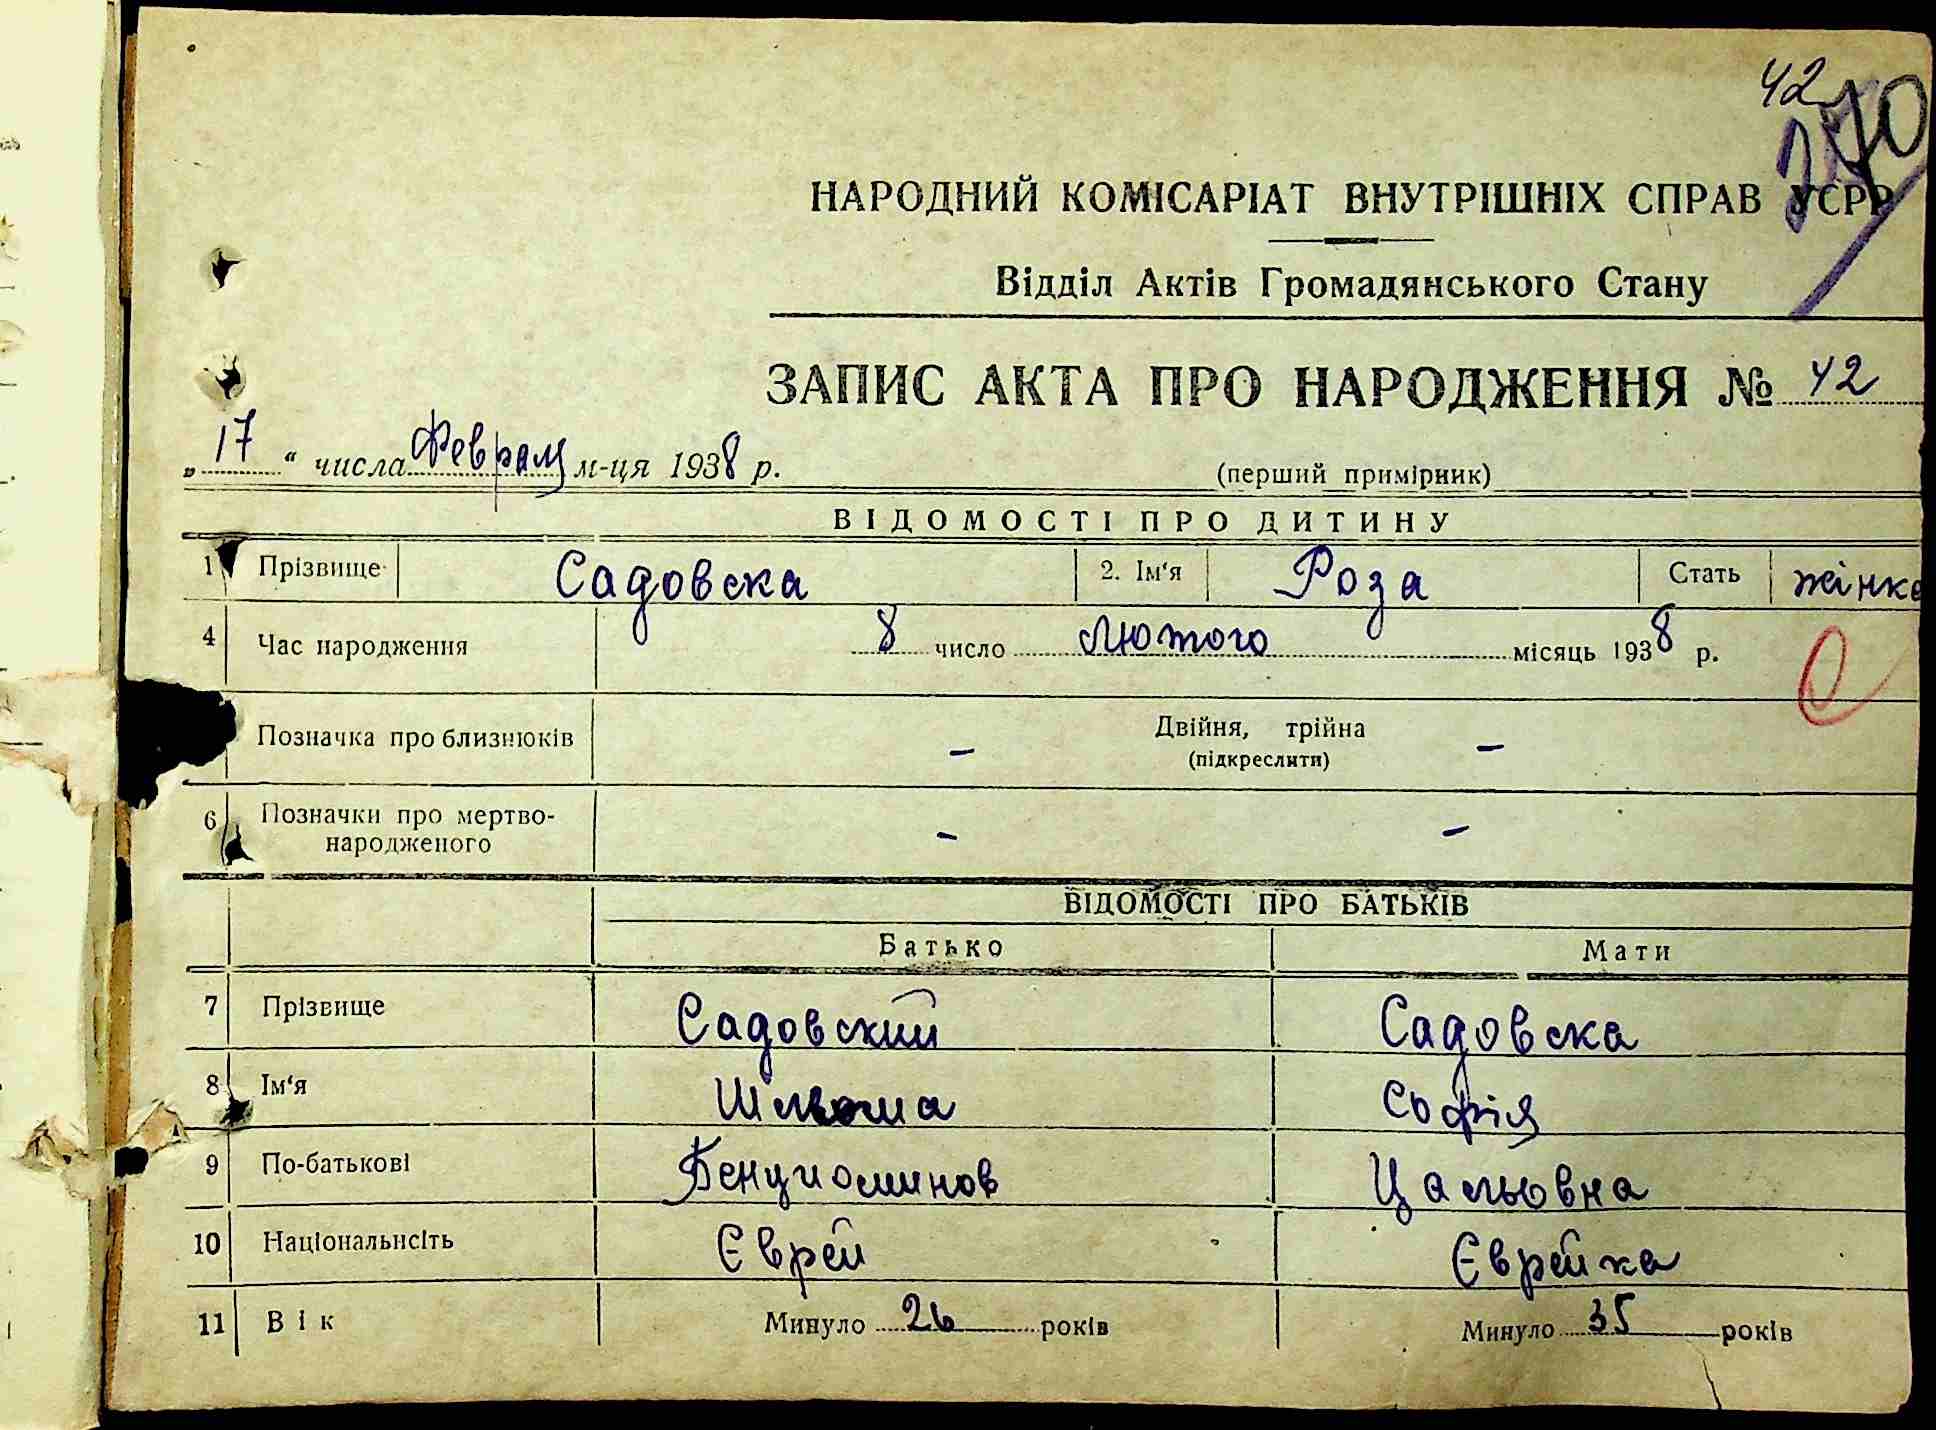 42
70
НАРОДНИЙ КОМІСАРІАТ ВНУТРІШНІХ СПРАВ УСРР
Відділ Актів Громадянського Стану
ЗАПИС АКТА ПРО НАРОДЖЕННЯ № 42
„17“ числа Февраля м-ця 1938 р.
(перший примірник)
ВІДОМОСТІ ПРО ДИТИНУ
1 Прізвище Садовска 2. Ім'я Роза Стать жінка
4 Час народження 8 число Лютого місяць 1938 р.
Позначка про близнюків - Двійня, трійна -
(підкреслити)
6 Позначки про мертво-
народженого - -
ВІДОМОСТІ ПРО БАТЬКІВ
Батько Мати
7 Прізвище Садовский Садовска
8 Ім'я Софія
9 По-батькові Цальовна
10 Національнсіть Єврей Єврейка
11 Вік Минуло 26 років Минуло 35 років